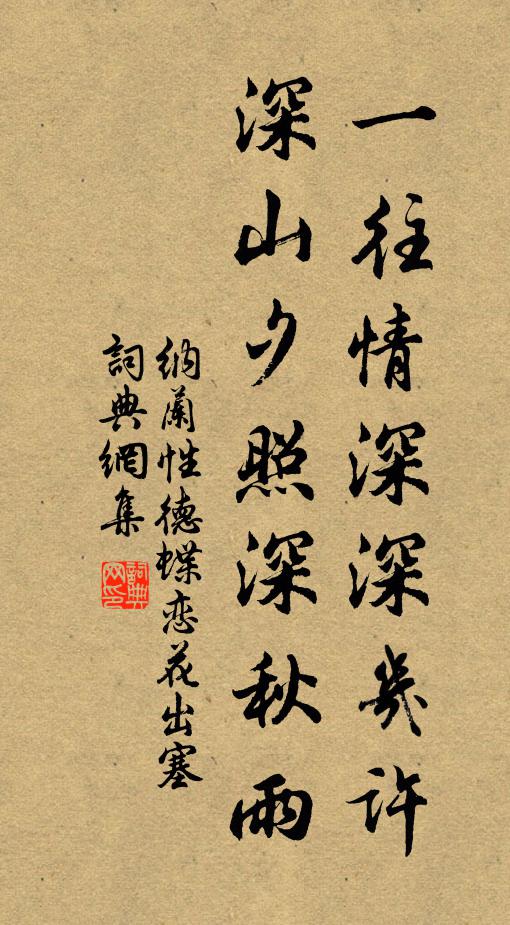 一往情深深幾許
深山夕照深秋雨
納蘭性德蝶恋花出塞
詞典網集
詞典网印